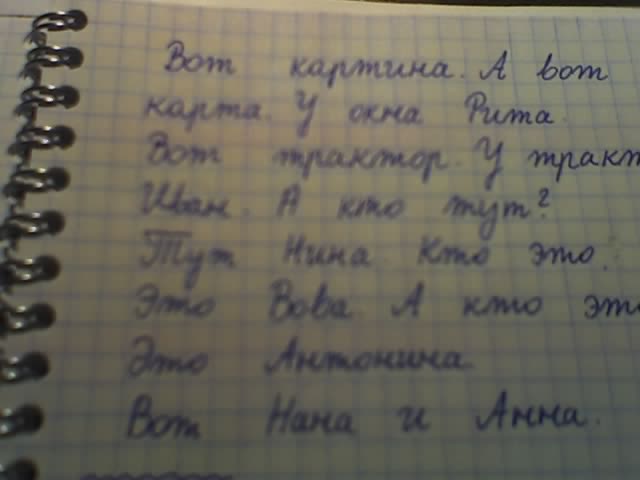 Вот картина. А вот
карта. У окна Рита.
Вот трактор. У тракт
Иван. А кто тут?
Тут Нина. Кто это.
Это Вова. А кто это
Это Антонина.
Вот Нана и Анна.